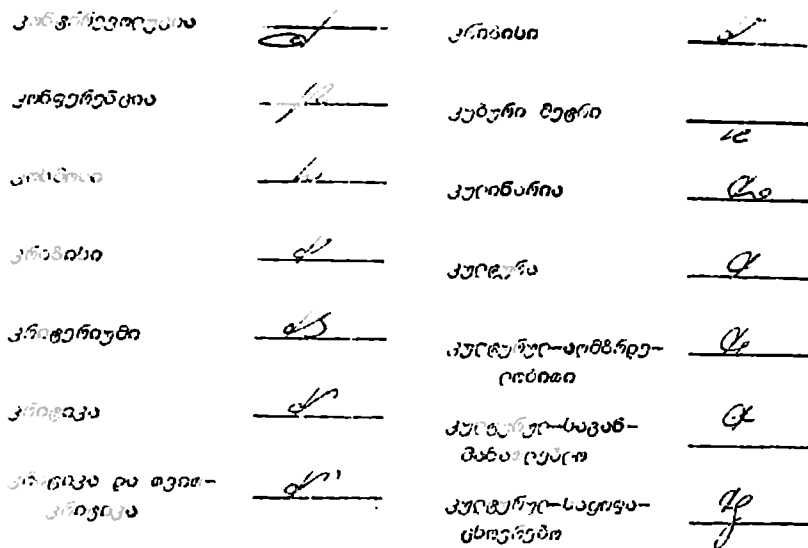 კონტრრევოლუცია
კონფერენცია
კოსმოსი
კრიზისი
კრიტერიუმი
კრიტიკა
კრიტიკა და თვით-
კრიტიკა
კუბური მეტრი
კულინარია
კულტურა
კულტურულ-აღმზრდე-
ლობითი
კულტურულ-საგან-
მანათლებლო
კულტურულ-საყოფა-
ცხოვრებო